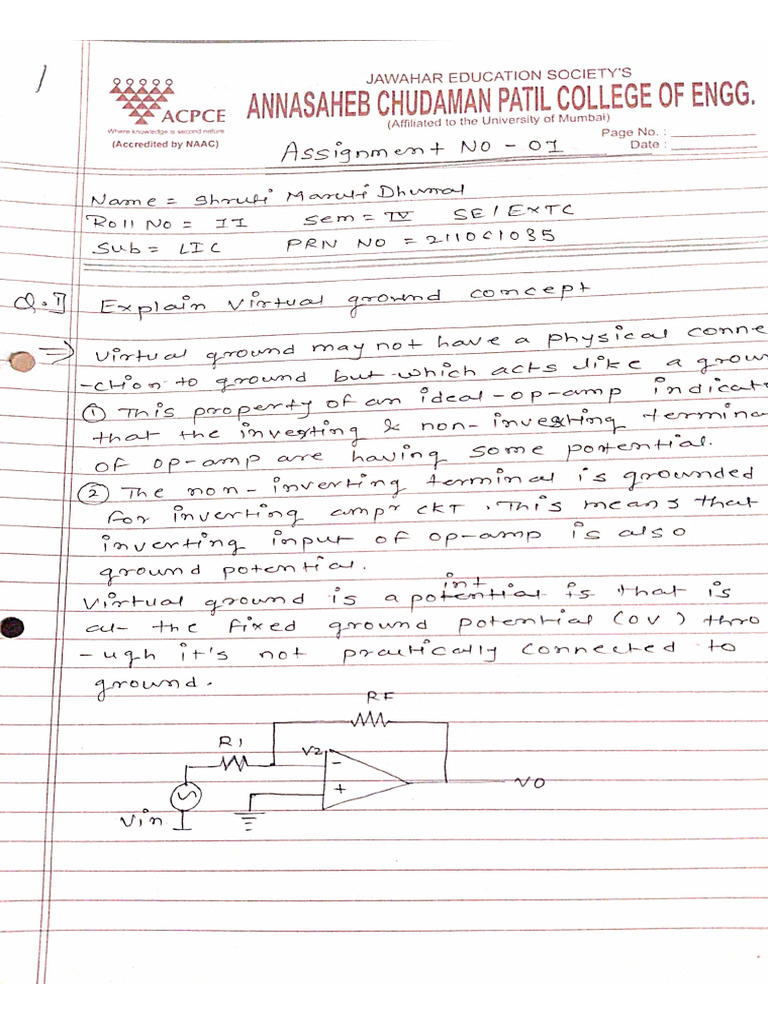 1
JAWAHAR EDUCATION SOCIETY'S
ANNASAHEB CHUDAMAN PATIL COLLEGE OF ENGG.
(Affiliated to the University of Mumbai)
ACPCE
Where knowledge is second nature
(Accredited by NAAC)
Page No. :
Date :
Assignment No - 01
Name = Shruti Maruti Dhumal
Roll No = 11 Sem = IV SE / EXTC
Sub = LIC PRN NO = 211061035
Q.1 Explain Virtual ground concept
⇒ Virtual ground may not have a physical conne
-ction to ground but which acts like a groun
① This property of an ideal-op-amp indicat
that the inverting & non-inverting termina
of op-amp are having some potential.
② The non-inverting terminal is grounded
for inverting ampr CKT. This means that
inverting input of op-amp is also
ground potential.
int
Virtual ground is a potential is that is
at the fixed ground potential (0V) thro
-ugh it's not practically connected to
ground.
RF
R1
V2
-
+
VO
Vin